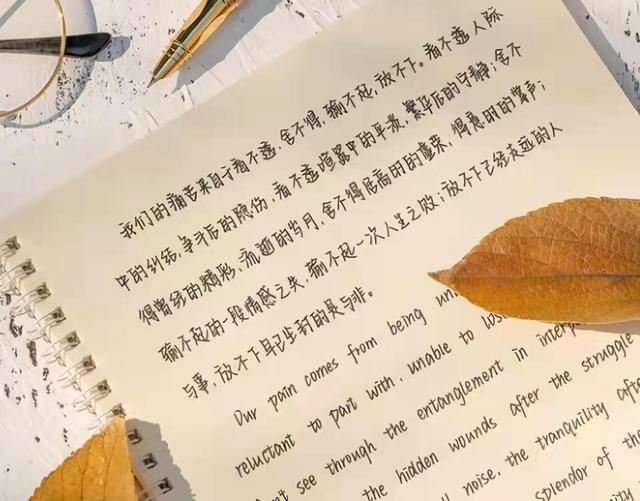 我们的痛苦来自于看不透,舍不得,输不起,放不下。看不透人际
中的纠结,争斗后的隐伤,看不透喧嚣中的平淡,繁华后的宁静;舍不
得曾经的精彩,流逝的岁月,舍不得居高时的虚荣,得意时的掌声;
输不起的一段情感之失,输不起一次人生之败;放不下已经走远的人
与事,放不下早已尘封的是与非。
Our pain comes from being
reluctant to part with, unable to
see through the entanglement in
the hidden wounds after the struggle
noise, the tranquility
splendor of the